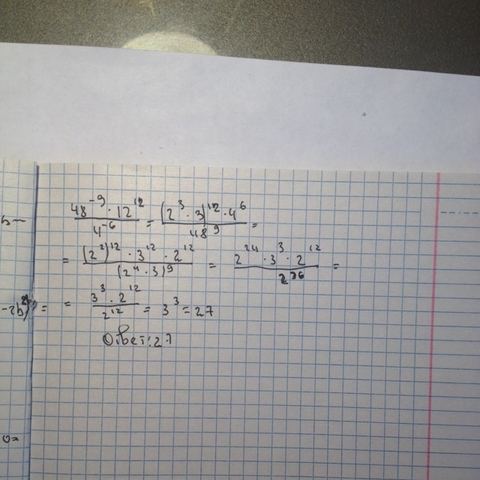 48^-9 · 12^12 / 4^-6 = (2^3 · 3)^12 · 4^6 / 48^9 =
= (2^2)^12 · 3^12 · 2^12 / (2^4 · 3)^9 = 2^24 · 3^3 · 2^12 / 2^36 =
= 3^3 · 2^12 / 2^12 = 3^3 = 27
Ответ: 27